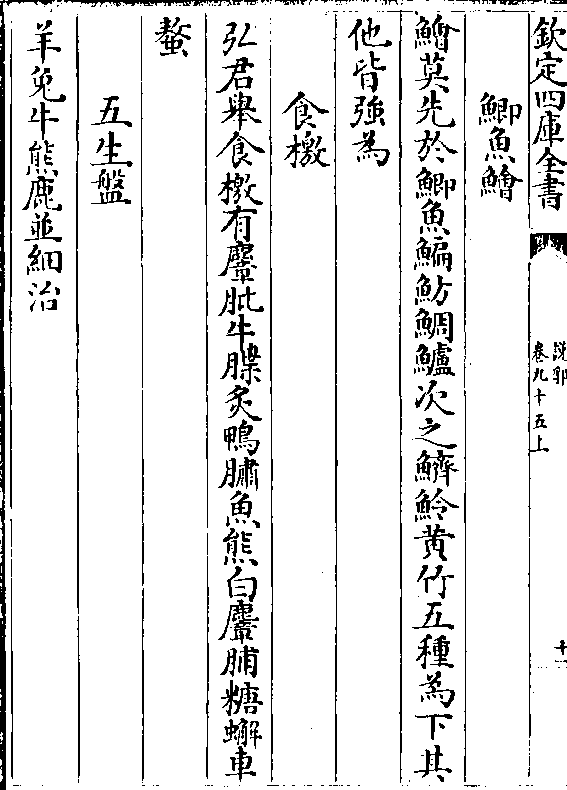 欽定四庫全書
說郛
卷九十五上
十一
鯽魚鱠
鱠莫先於鯽魚鯿魴鯛鱸次之鱭魿黄竹五種為下其
他皆強為
食檄
弘君舉食檄有麞肶牛腜炙鴨臇魚熊白麞脯糖蠏車
螯
五生盤
羊兔牛熊鹿並細治